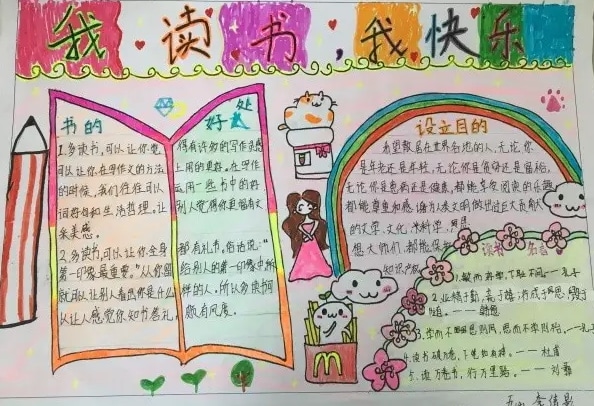 我读书,我快乐
书的好处
1.多读书,可以让你觉得有许多的写作灵感
可以让你在写作文的方法上用的更好。在写作
的时候,我们往往可以运用一些书中的好
词好句和生活哲理。让别人觉得你更富有文
采美感。
2.多读书,可以让你全身都有礼书。俗话说:“
第一印象最重要。”从你留给别人的第一印象中
就可以让别人看出你是什么样的人。所以多读书可
以让人感觉你知书答礼,颇有风度。
设立目的
希望散居在世界各地的人,无论你
是年老还是年轻,无论你是贫穷还是富裕,
无论你是患病还是健康,都能享受阅读的乐趣
都能尊重和感谢为人类文明做出过巨大贡献
的文学、文化、科学、思
想大师们,都能保
知识产权
读书名言
敏而好学,不耻下问——孔子
2.业精于勤,荒于嬉;行成于思,毁于
随。——韩愈
3.学而不思则罔,思而不学则殆。——孔子
4.读书破万卷,下笔如有神。——杜甫
5.读万卷书,行万里路。——刘彝